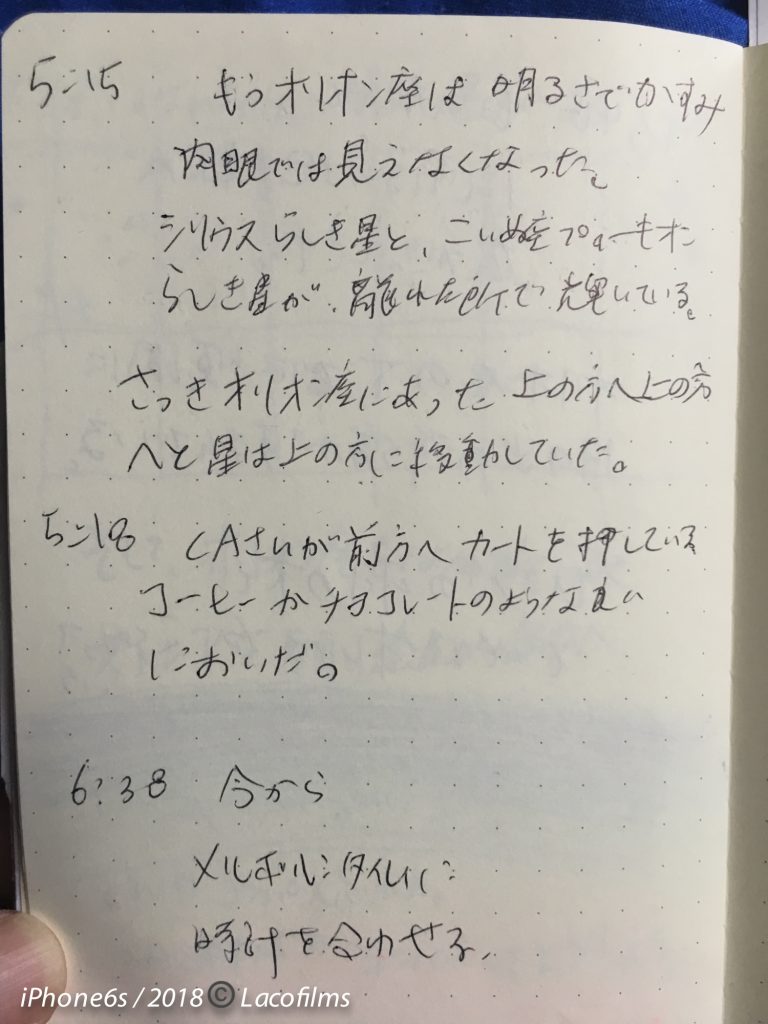 5:15 もうオリオン座は 明るさでかすみ
肉眼では見えなくなった。
シリウスらしき星と、こいぬ座プロキオン
らしき星が、離れた所で輝いている。
さっきオリオン座にあった 上の方へ上の方
へと星は上の方に移動していた。
5:18 CAさんが前方へ カートを押している
コーヒーかチョコレートのような良い
においだ。
6:38 今から
メルボルンタイムに
時計を合わせる。
iPhone6s / 2018 © Lacofilms